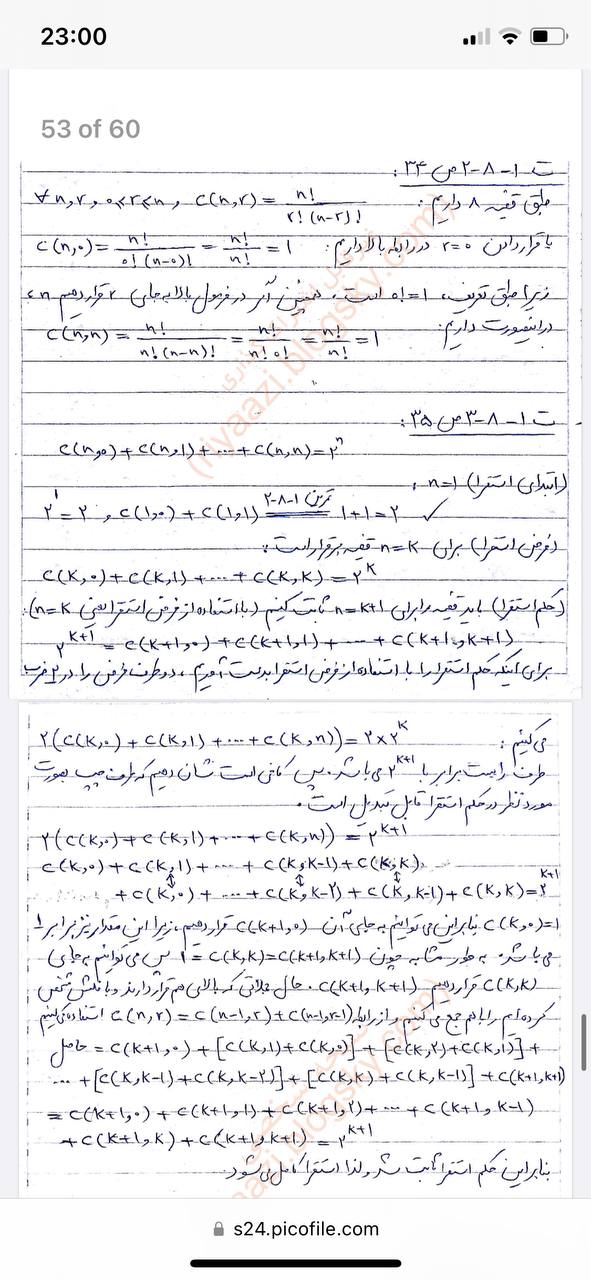 23:00
53 of 60
ت ۱-۸-۲ ص ۳۴:
طبق قضیه ۸ داریم: ∀n,r, ۰≤r≤n, C(n,r) = n! / r!(n-r)!
با قرار دادن r=۰ در رابطه بالا داریم: C(n,۰) = n! / ۰!(n-۰)! = n!/n! = ۱
زیرا طبق تعریف، ۰!=۱ است. همچنین اگر در فرمول بالا به جای r قرار دهیم n،
در اینصورت داریم: C(n,n) = n! / n!(n-n)! = n! / n!۰! = n!/n! = ۱
ت ۱-۸-۳ ص ۳۵:
C(n,۰)+C(n,۱)+...+C(n,n)=۲ⁿ
(ابتدای استقرا) n=۱،
۲¹=۲ و C(۱,۰)+C(۱,۱) = تمرین ۱-۸-۲ = ۱+۱=۲ ✓
(فرض استقرا) برای n=K قضیه برقرار است:
C(K,۰)+C(K,۱)+...+C(K,K)=۲^K
(حکم استقرا) باید قضیه را برای n=K+۱ ثابت کنیم (با استفاده از فرض استقرا یعنی n=K):
۲^K+۱ = C(K+۱,۰)+C(K+۱,۱)+...+C(K+۱,K+۱)
برای اینکه حکم استقرا را با استفاده از فرض استقرا بدست آوریم، دو طرف فرض را در ۲ ضرب
می‌کنیم: ۲(C(K,۰)+C(K,۱)+...+C(K,n))=۲×۲^K
طرف راست برابر با ۲^K+۱ می‌باشد. پس کافی است نشان دهیم که طرف چپ بصورت
مورد نظر در حکم استقرا قابل تبدیل است.
۲(C(K,۰)+C(K,۱)+...+C(K,n)) = ۲^K+۱
C(K,۰)+C(K,۱)+...+C(K,K-۱)+C(K,K)
+C(K,۰)+...+C(K,K-۲)+C(K,K-۱)+C(K,K)=۲^K+۱
C(K,۰)=۱ بنابراین می‌توانیم به جای آن C(K+۱,۰) قرار دهیم، زیرا این مقدار نیز برابر ۱
می‌باشد. به طور مشابه چون C(K,K)=C(K+۱,K+۱)=۱ پس می‌توانیم به جای
C(K,K) قرار دهیم C(K+۱,K+۱). حال جملاتی که بالای هم قرار دارند و با فلش مشخص
کرده‌ایم را با هم جمع می‌کنیم و از رابطه C(n,r)=C(n-۱,r)+C(n-۱,r-۱) استفاده می‌کنیم
حاصل = C(K+۱,۰)+[C(K,۱)+C(K,۰)]+[C(K,۲)+C(K,۱)]+
...+[C(K,K-۱)+C(K,K-۲)]+[C(K,K)+C(K,K-۱)]+C(K+۱,K+۱)
=C(K+۱,۰)+C(K+۱,۱)+C(K+۱,۲)+...+C(K+۱,K-۱)
+C(K+۱,K)+C(K+۱,K+۱)=۲^K+۱
بنابراین حکم استقرا ثابت شد و لذا استقرا کامل می‌شود.
(riyaazi.blogsky.com)
s24.picofile.com